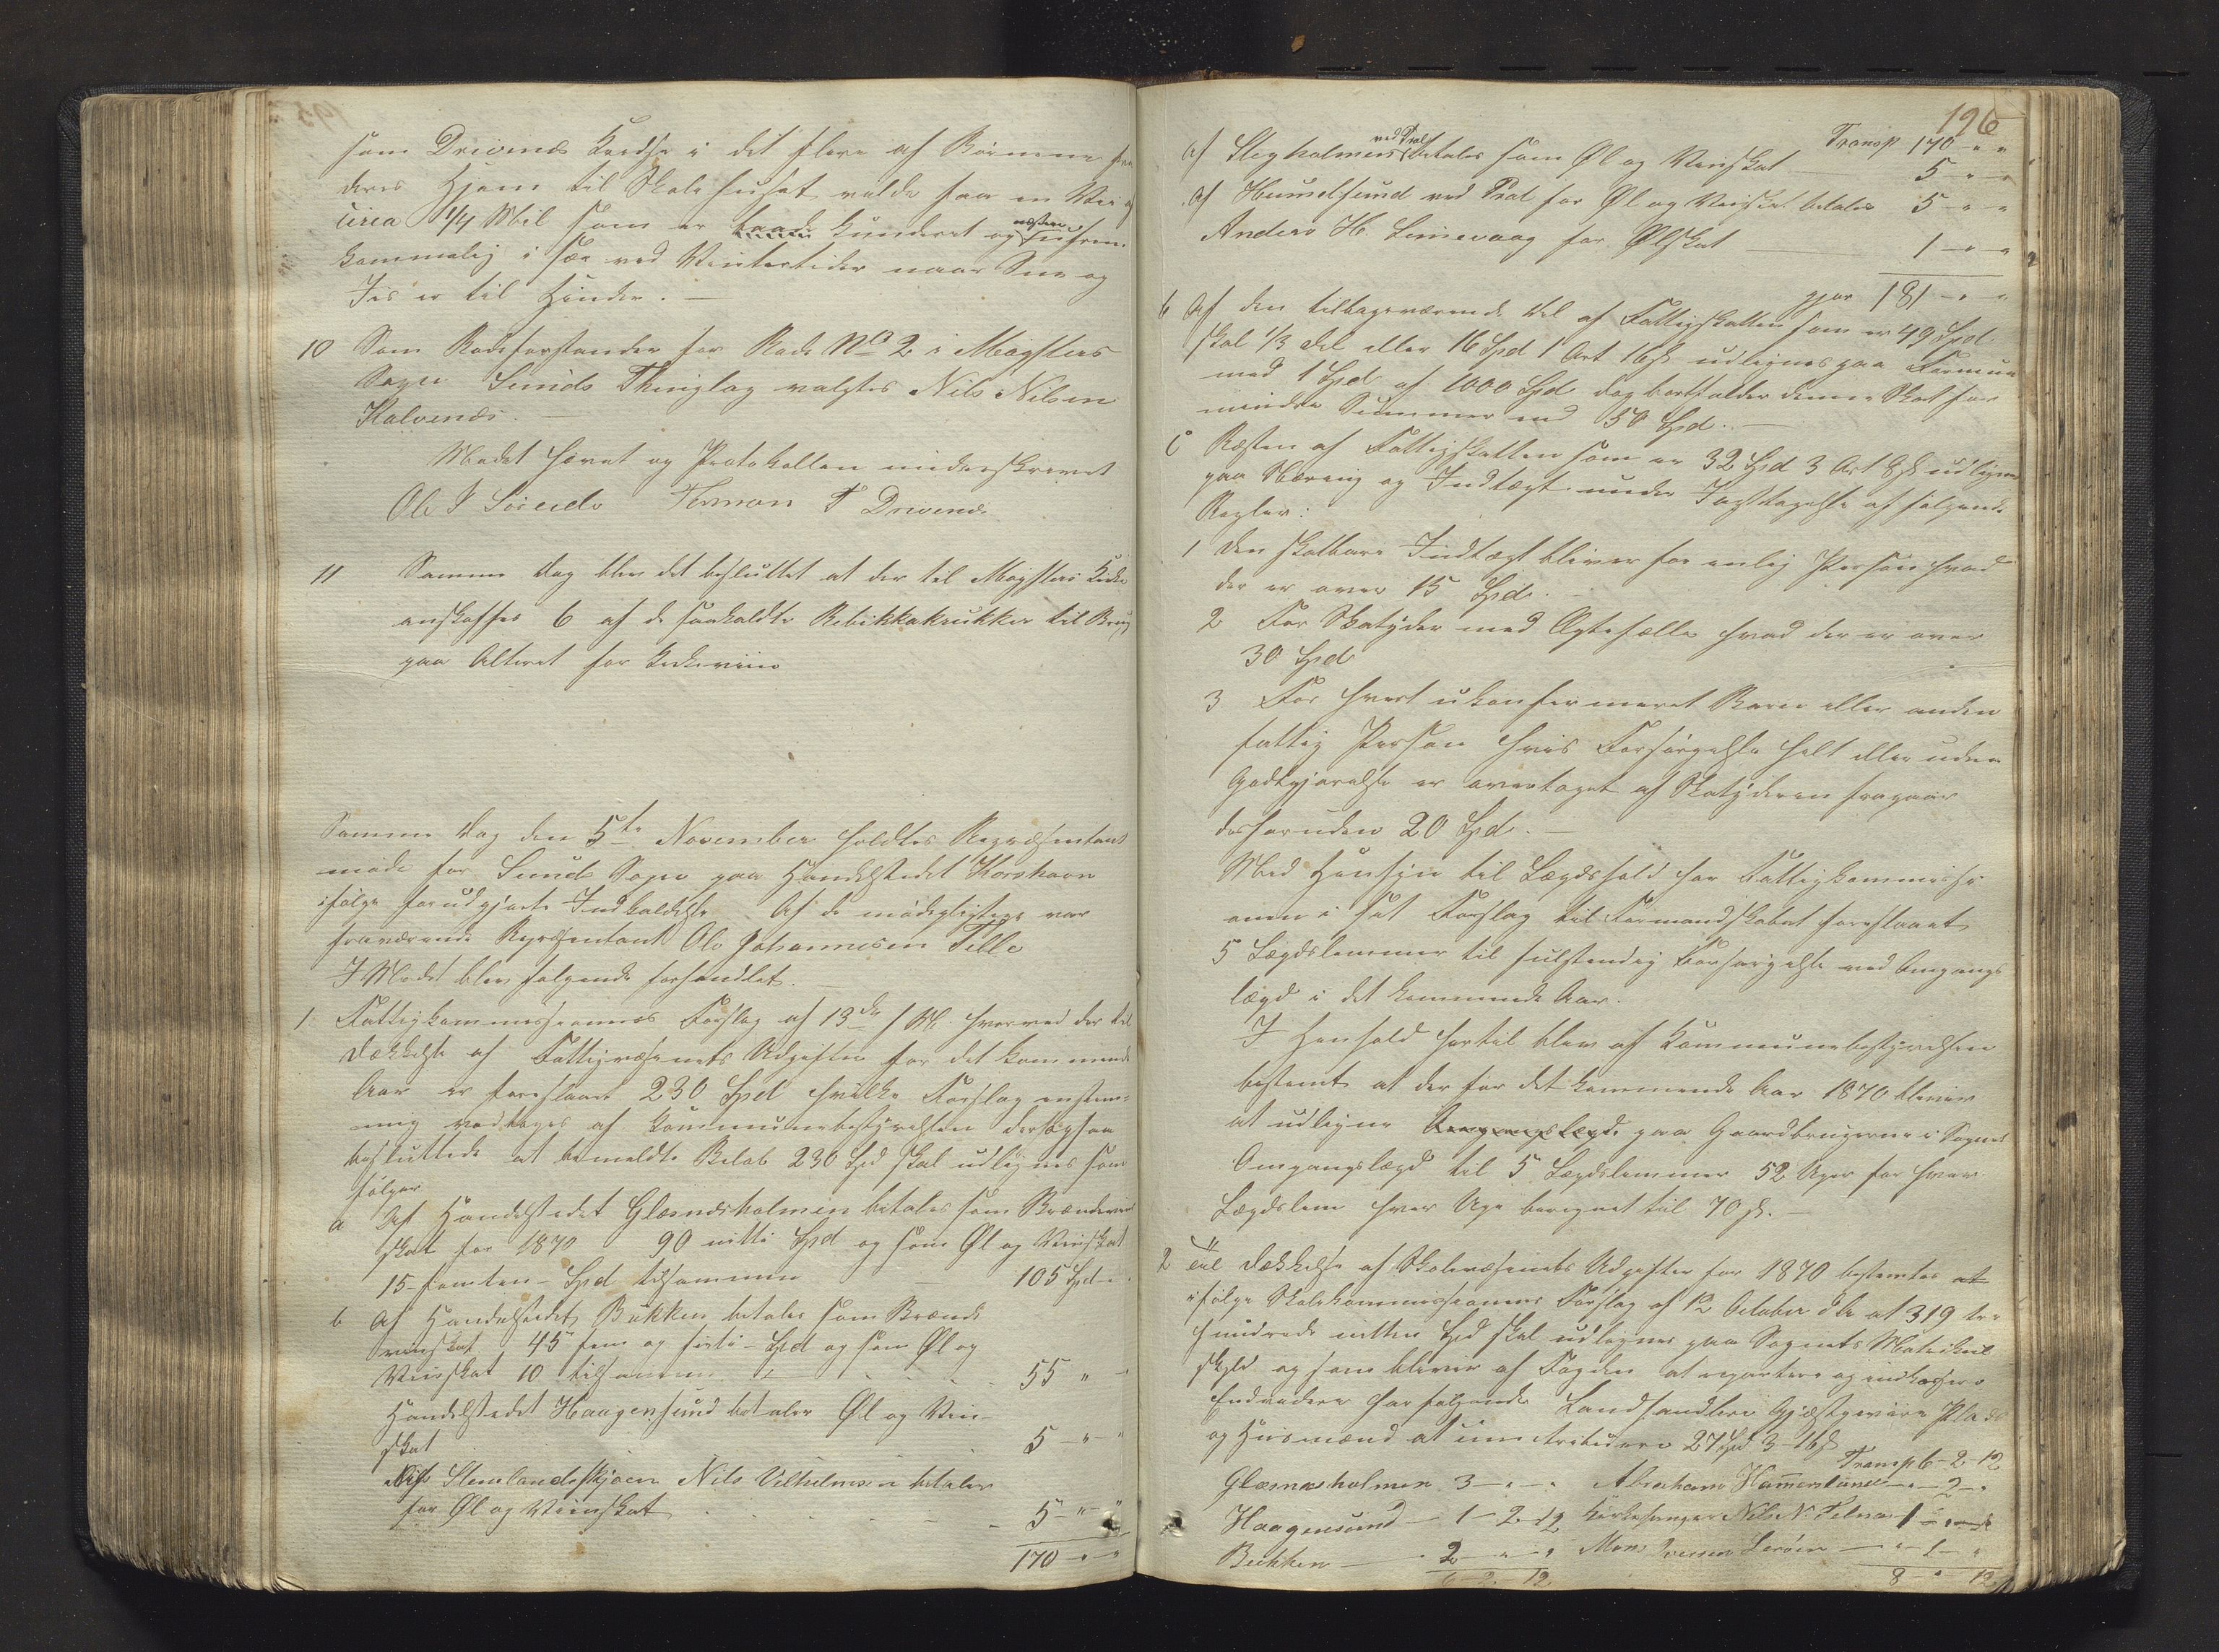 som Drivenes Kredse i det flere af Børnene fra
deres Hjem til Skolehuset vilde faa en Vei af
circa 1/4 Mil som er baade kunderet og næsten ufrem
kommelig i sær ved Vintertider naar Sne og
Jis er til Hinder. —
10 Som Rodeforstander for Rode No 2 i Møgsters
Sogn Sunds Thinglag valgtes Nils Nilsen
Kalvenæs. —
Mødet hævet og Protokollen underskrevet
Ole J Søreide Simon T Drivenæs
11 Samme Dag blev det besluttet at der til Møgsters Kirke
anskaffes 6 af de saakaldte Rebikkakrukker til Brug
paa Alteret for Kirkeviin
Samme Dag den 5te November holdtes Repræsentant
møde for Sunds Sogn paa Handelsstedet Korshavn
ifølge forudgjorte Indkaldelse Af de mødepligtige var
fraværende Repræsentant Ole Johannesen Telle
I Mødet blev følgende forhandlet. —
1 Fattigkommissionens Forslag af 13de f M. hvorved der til
Dækkelse af Fattigvæsenets Udgifter for det kommende
Aar er foreslaaet 230 Spd hvilke Forslag enstem=
mig vedtoges af Kommunebestyrelsen dertilsaa
besluttede at bemeldte Beløb 230 Spd skal udlignes som
følger
a Af Handelstedet Glæsnæsholmen betales som Brændeviins
skat for 1870 90 nitti Spd og som Øl og Viinskat
15 femten Spd tilsammen — 105 Spd
b Af Handelstedet Bukken betales som Brænde
vinskat 45 fem og firti Spd og som Øl og
Viinskat 10 tilsammen 55 " "
Handelstedet Haagensund betaler Øl og Vin
skat 5 " "
Af Steinlandsskjæn Nils Vilhelmsen betaler
for Øl og Viinskat 5 " "
170 " "
196
Transp 170 " "
Af Slegholmens ved Prol betales som Øl og Vinskat 5 " "
Af Hummelsund ved Prol for Øl og Vinskat betales 5 " "
Anders H. Limevaag for Ølskat 1 " "
gjør 181 " "
b Af den tilbageværende Del af Fattigskatten som er 49 Spd
skal 1/3 Del eller 16 Spd 1 Ort 16 s udlignes paa Formue
med 1 Spd af 1000 Spd dog bortfalder denne Skat for
mindre Summer end 50 Spd. —
c Resten af Fattigskatten som er 32 Spd 3 Ort 8 s udlignes
paa Næring og Indtægt under Iagttagelse af følgende
Regler:
1 Den skatbare Indtægt bliver for enlig Person hvad
der er over 15 Spd.
2 For Skatyder med Ægtefælle hvad der er over
30 Spd
3 For hvert ukonfirmeret Barn eller anden
fattig Person hvis Forsørgelse helt eller uden
Godtgjørelse er overtaget af Skatyderen fragaar
desforuden 20 Spd. —
Med Hensyn til Lægdshold har Fattigkommissi
onen i sit Forslag til Formandskabet foreslaaet
5 Lægdslemmer til fulstendig Forsørgelse ved Omgangs
lægd i det kommende Aar.
I Henhold hertil blev af Kommunebestyrelsen
bestemt at der for det kommende Aar 1870 bliver
at udligne Omgangslægd paa Gaardbrugerne i Sognet
Omgangslægd til 5 Lægdslemmer 52 Uger for hver
Lægdslem hver Uge beregnet til 70 s. —
2 Til Dækkelse af Skolevæsenets Udgifter for 1870 bestemtes at
ifølge Skolekommissionens Forslag af 12 October d A at 319 tre
hundrede nitten Spd skal udlignes paa Sognets Matrikul
skyld og som bliver af Fogden at repartere og indkassere
Endvidere har følgende Landhandlere Gjæstgivere Plads
og Husmænd at kontribuere 27 Spd 3 16 s
Transp 6 - 2 12
Glæsnæsholmen 3 " " Abraham Hammersund " 2 "
Haagensund 1 - 2 - 12 Kirkesanger Nils N. Telnæs 1 " "
Bukken 2 " " Mons Iversen Lerøen " 1 "
6 2 12 8 " 12